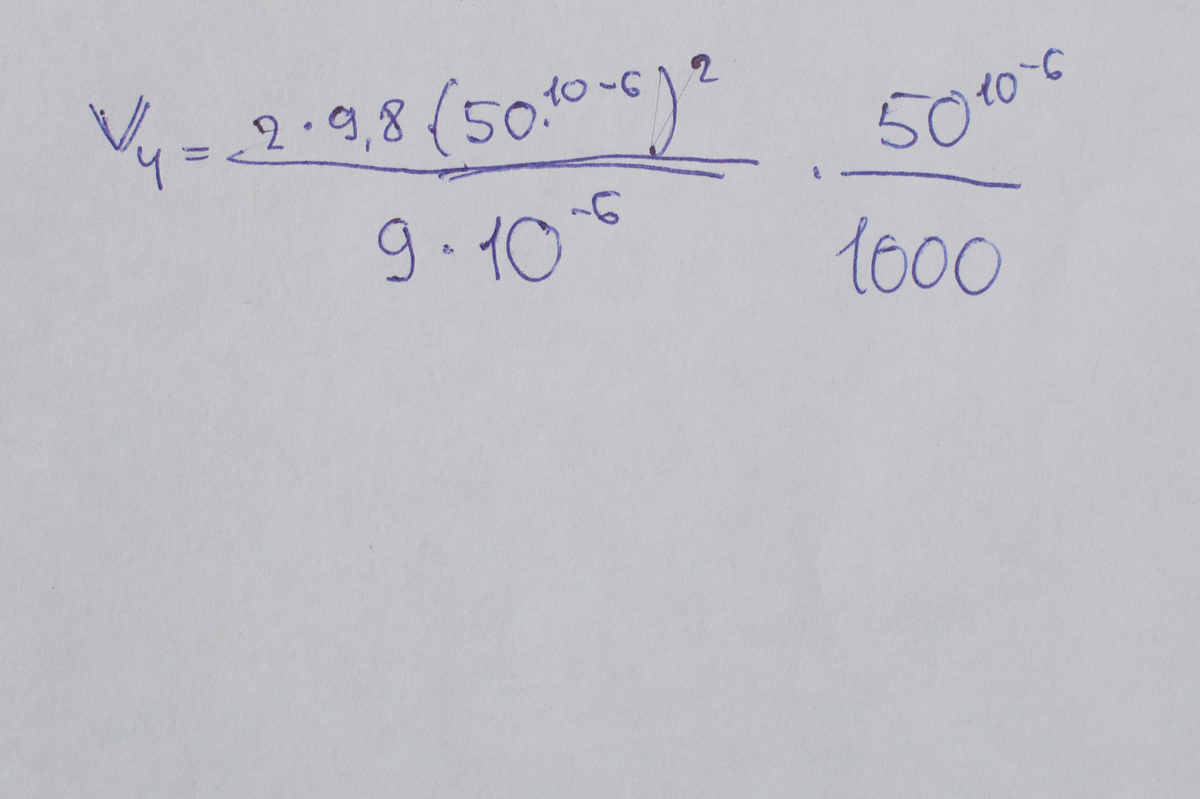 V₄ = (2 · 9,8 (50·^{10-6})²) / (9 · 10⁻⁶) · 50^{10⁻⁶} / 1000